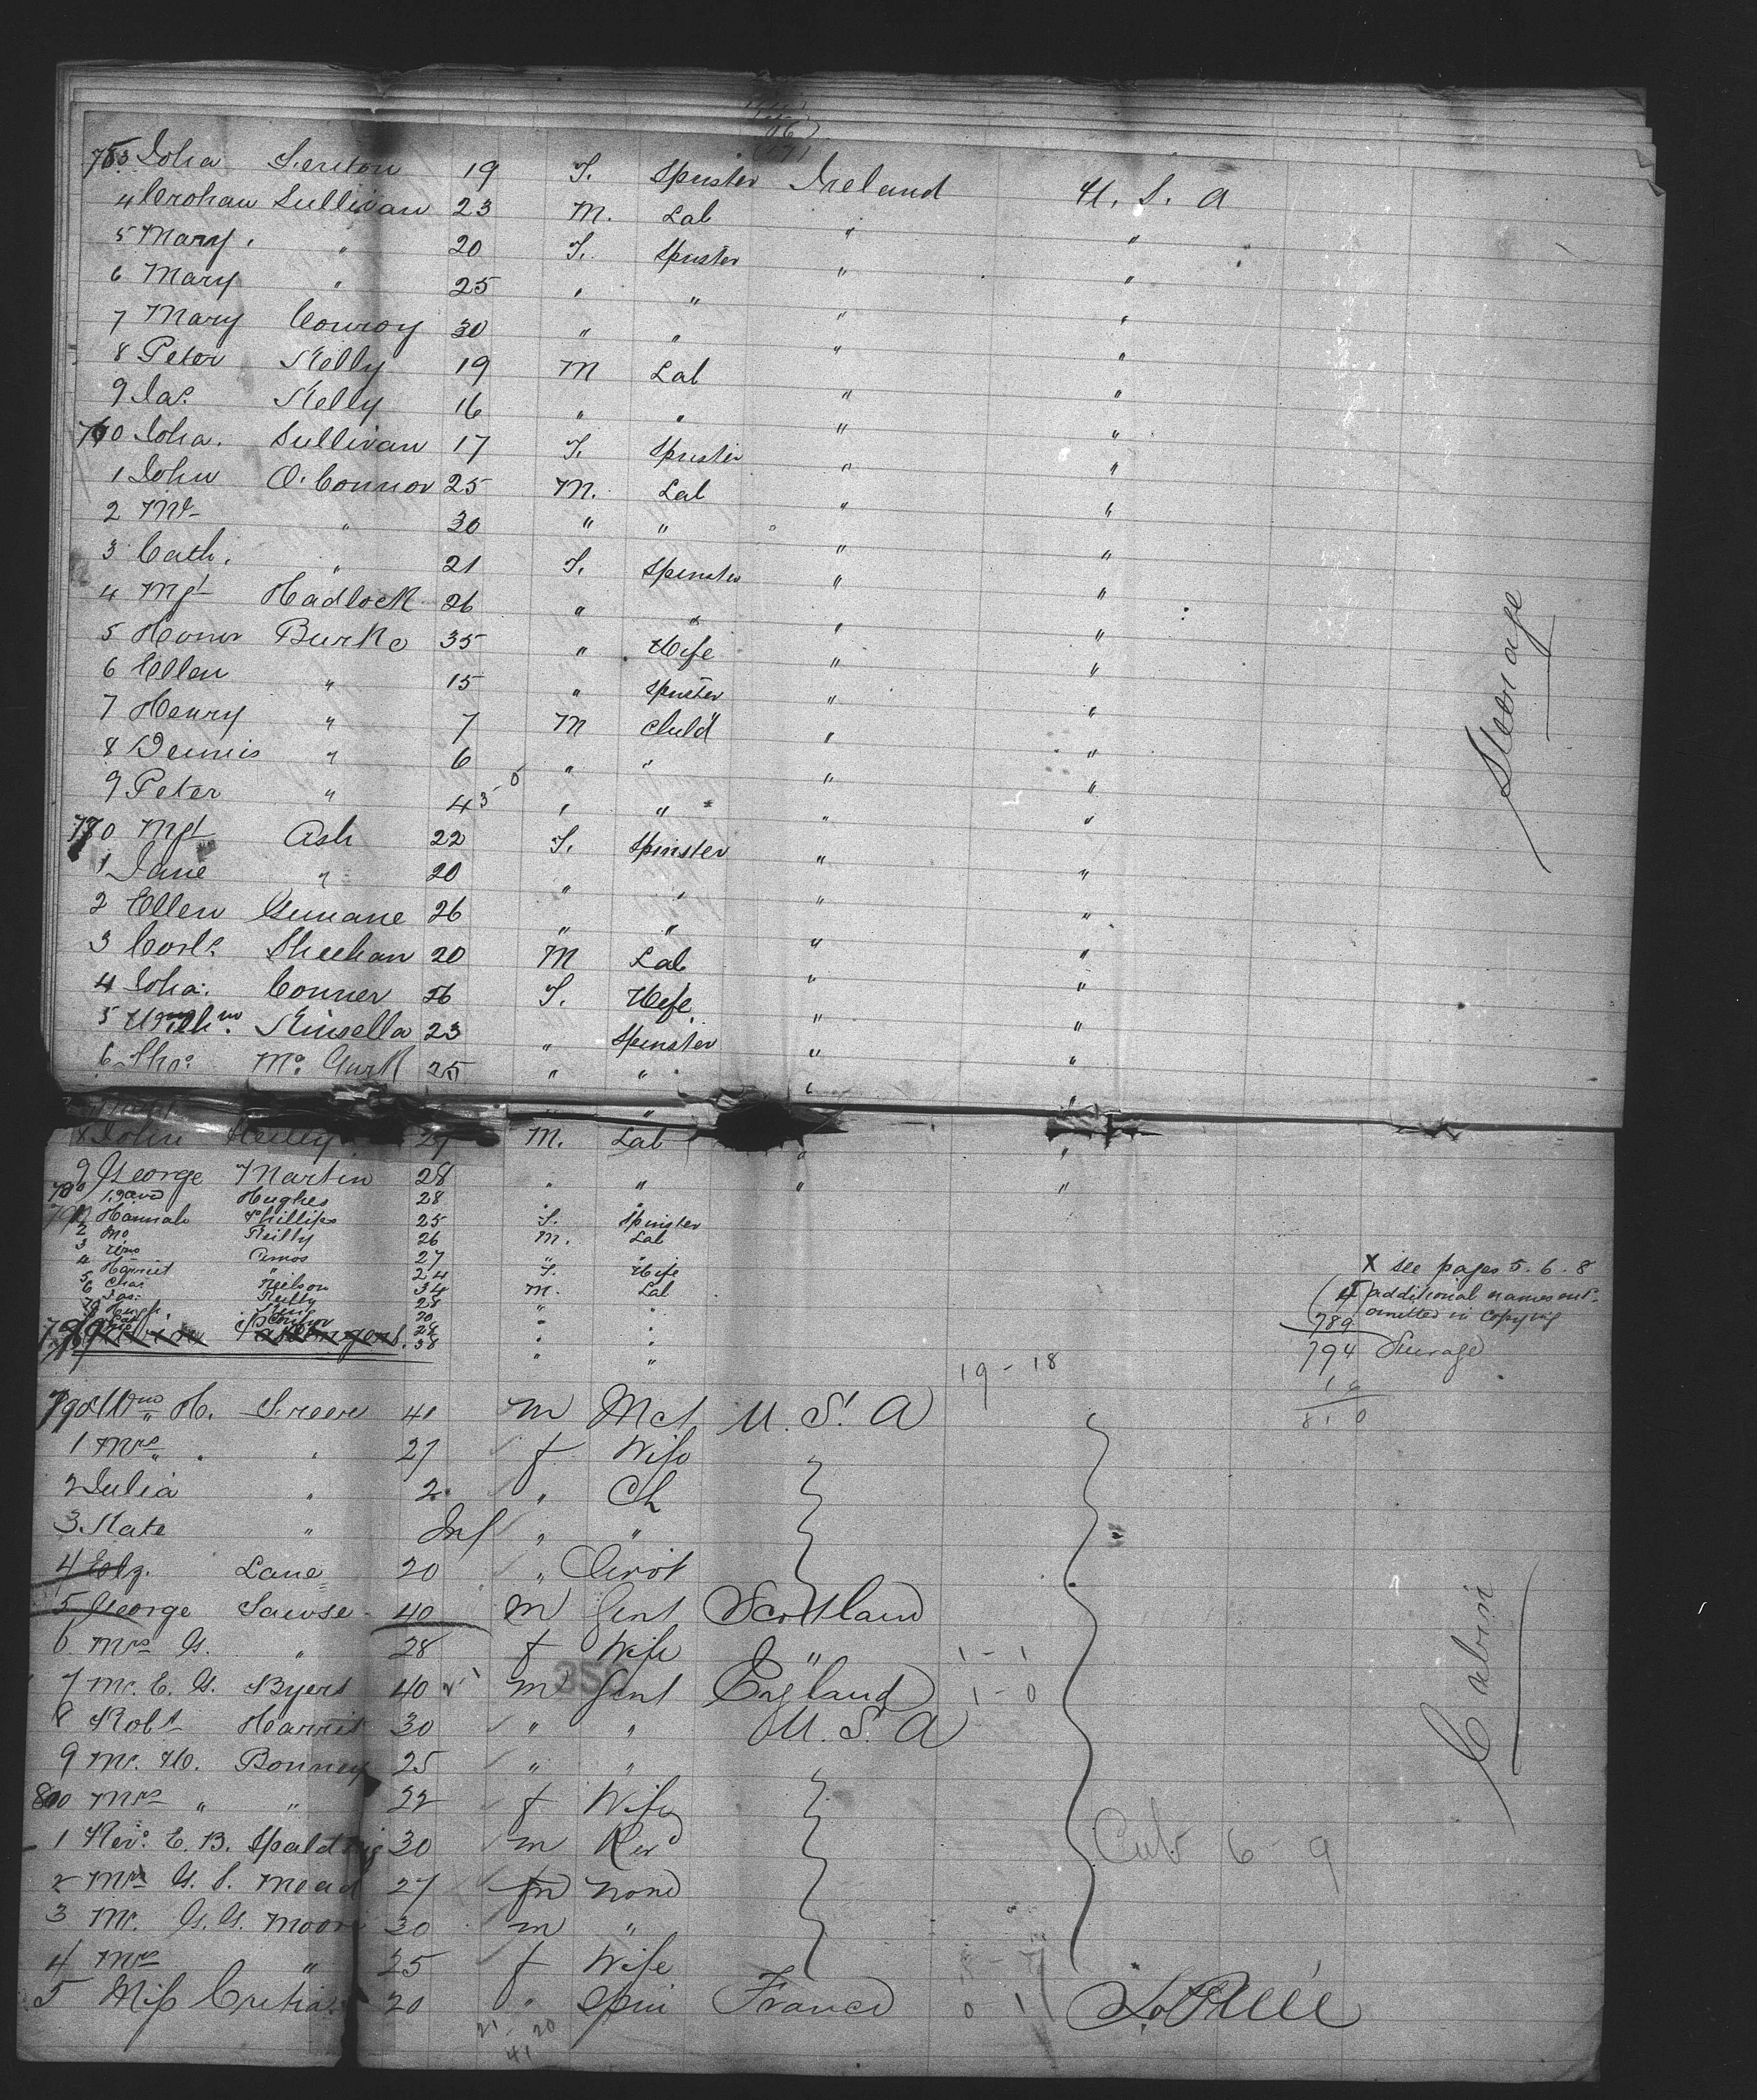 753 Joha Sexton 19 F. Spinster Ireland U. S. A
4 Crohan Sullivan 23 M. Lab " "
5 Mary " 20 F. Spinster " "
6 Mary " 25 " " " "
7 Mary Conroy 30 " " " "
8 Peter Kelly 19 M Lab " "
9 Jas. Kelly 16 " " " "
760 Joha. Sullivan 17 F. Spinster " "
1 John O'Connor 25 M. Lab " "
2 " 30 " " " "
3 Cath. " 21 F. Spinster " "
4 Mgt Hadlock 26 " " " "
5 Honor Burke 35 " Wife " "
6 Ellen " 15 " Spinster " "
7 Henry " 7 M Child " "
8 Dennis " 6 " " " "
9 Peter " 4 " " " "
770 Mgt Ash 22 F. Spinster " "
1 Jane " 20 " " " "
2 Ellen Guinane 26 " " " "
3 Corls. Sheehan 20 M Lab " "
4 Joha. Conner 26 F. Wife " "
5 Kinsella 23 " Spinster " "
6 Tho: Mc. Gurk 25 " " " "
8 John 27 M. Lab " "
9 George Martin 28 " " " "
780 David Hughes 28 " "
Hannah Phillips 25 F. Spinster
2 Mo Reilly 26 M. Lab
3 Wm Amos 27 " "
4 Harriet " 24 F. Wife
5 Chas. Neilson 34 M. Lab
6 Jas: Reilly 28 " "
Hugh King 20 " "
Connor 24
38 " "
Steerage
X see pages 5. 6. 8
additional names
omitted in Copying
789
794 Steerage
16
810
19 - 18
790 Wm H. Greer 41 m Mct U. S. A
1 Mrs " " 27 f Wife
2 Julia " 2 " Ch
3 Kate " Inf " "
4 Eliz. Lane 20 "
5 George 40 m Gent Scotland
6 Mrs G. " 28 f Wife " 1 - 1
7 Mr. E. G. Byers 40 m Gent England 1 - 0
8 Robt Harris 30 " " U. S. A
9 Mr. W. Bonney 25 " "
800 Mrs " " 22 f Wife
1 Rev. E. B. Spalding 30 m Rev
2 Mrs G. S. Mead 27 none
3 Mr. G. G. Moore 30 m "
4 Mrs " 25 f Wife
5 Miss 20 " Spin France 0 1
Cabin
Cub 6 - 9
21 - 20
41